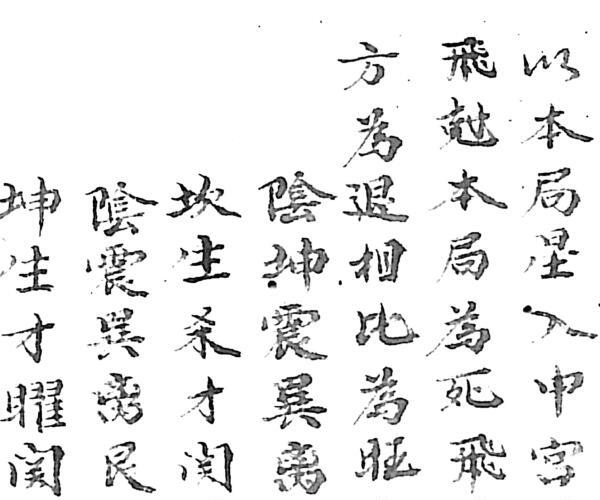 以本局星入中宫
飛尅本局為死飛
方為退相比為旺
陰坤震巽离
坎生杀才関
陰震巽离艮
坤生才曜関